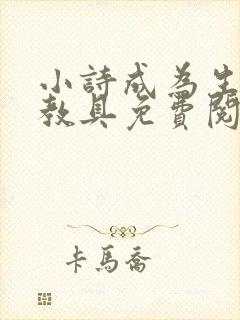 小詩成為生
教具免費閱
卡馬喬